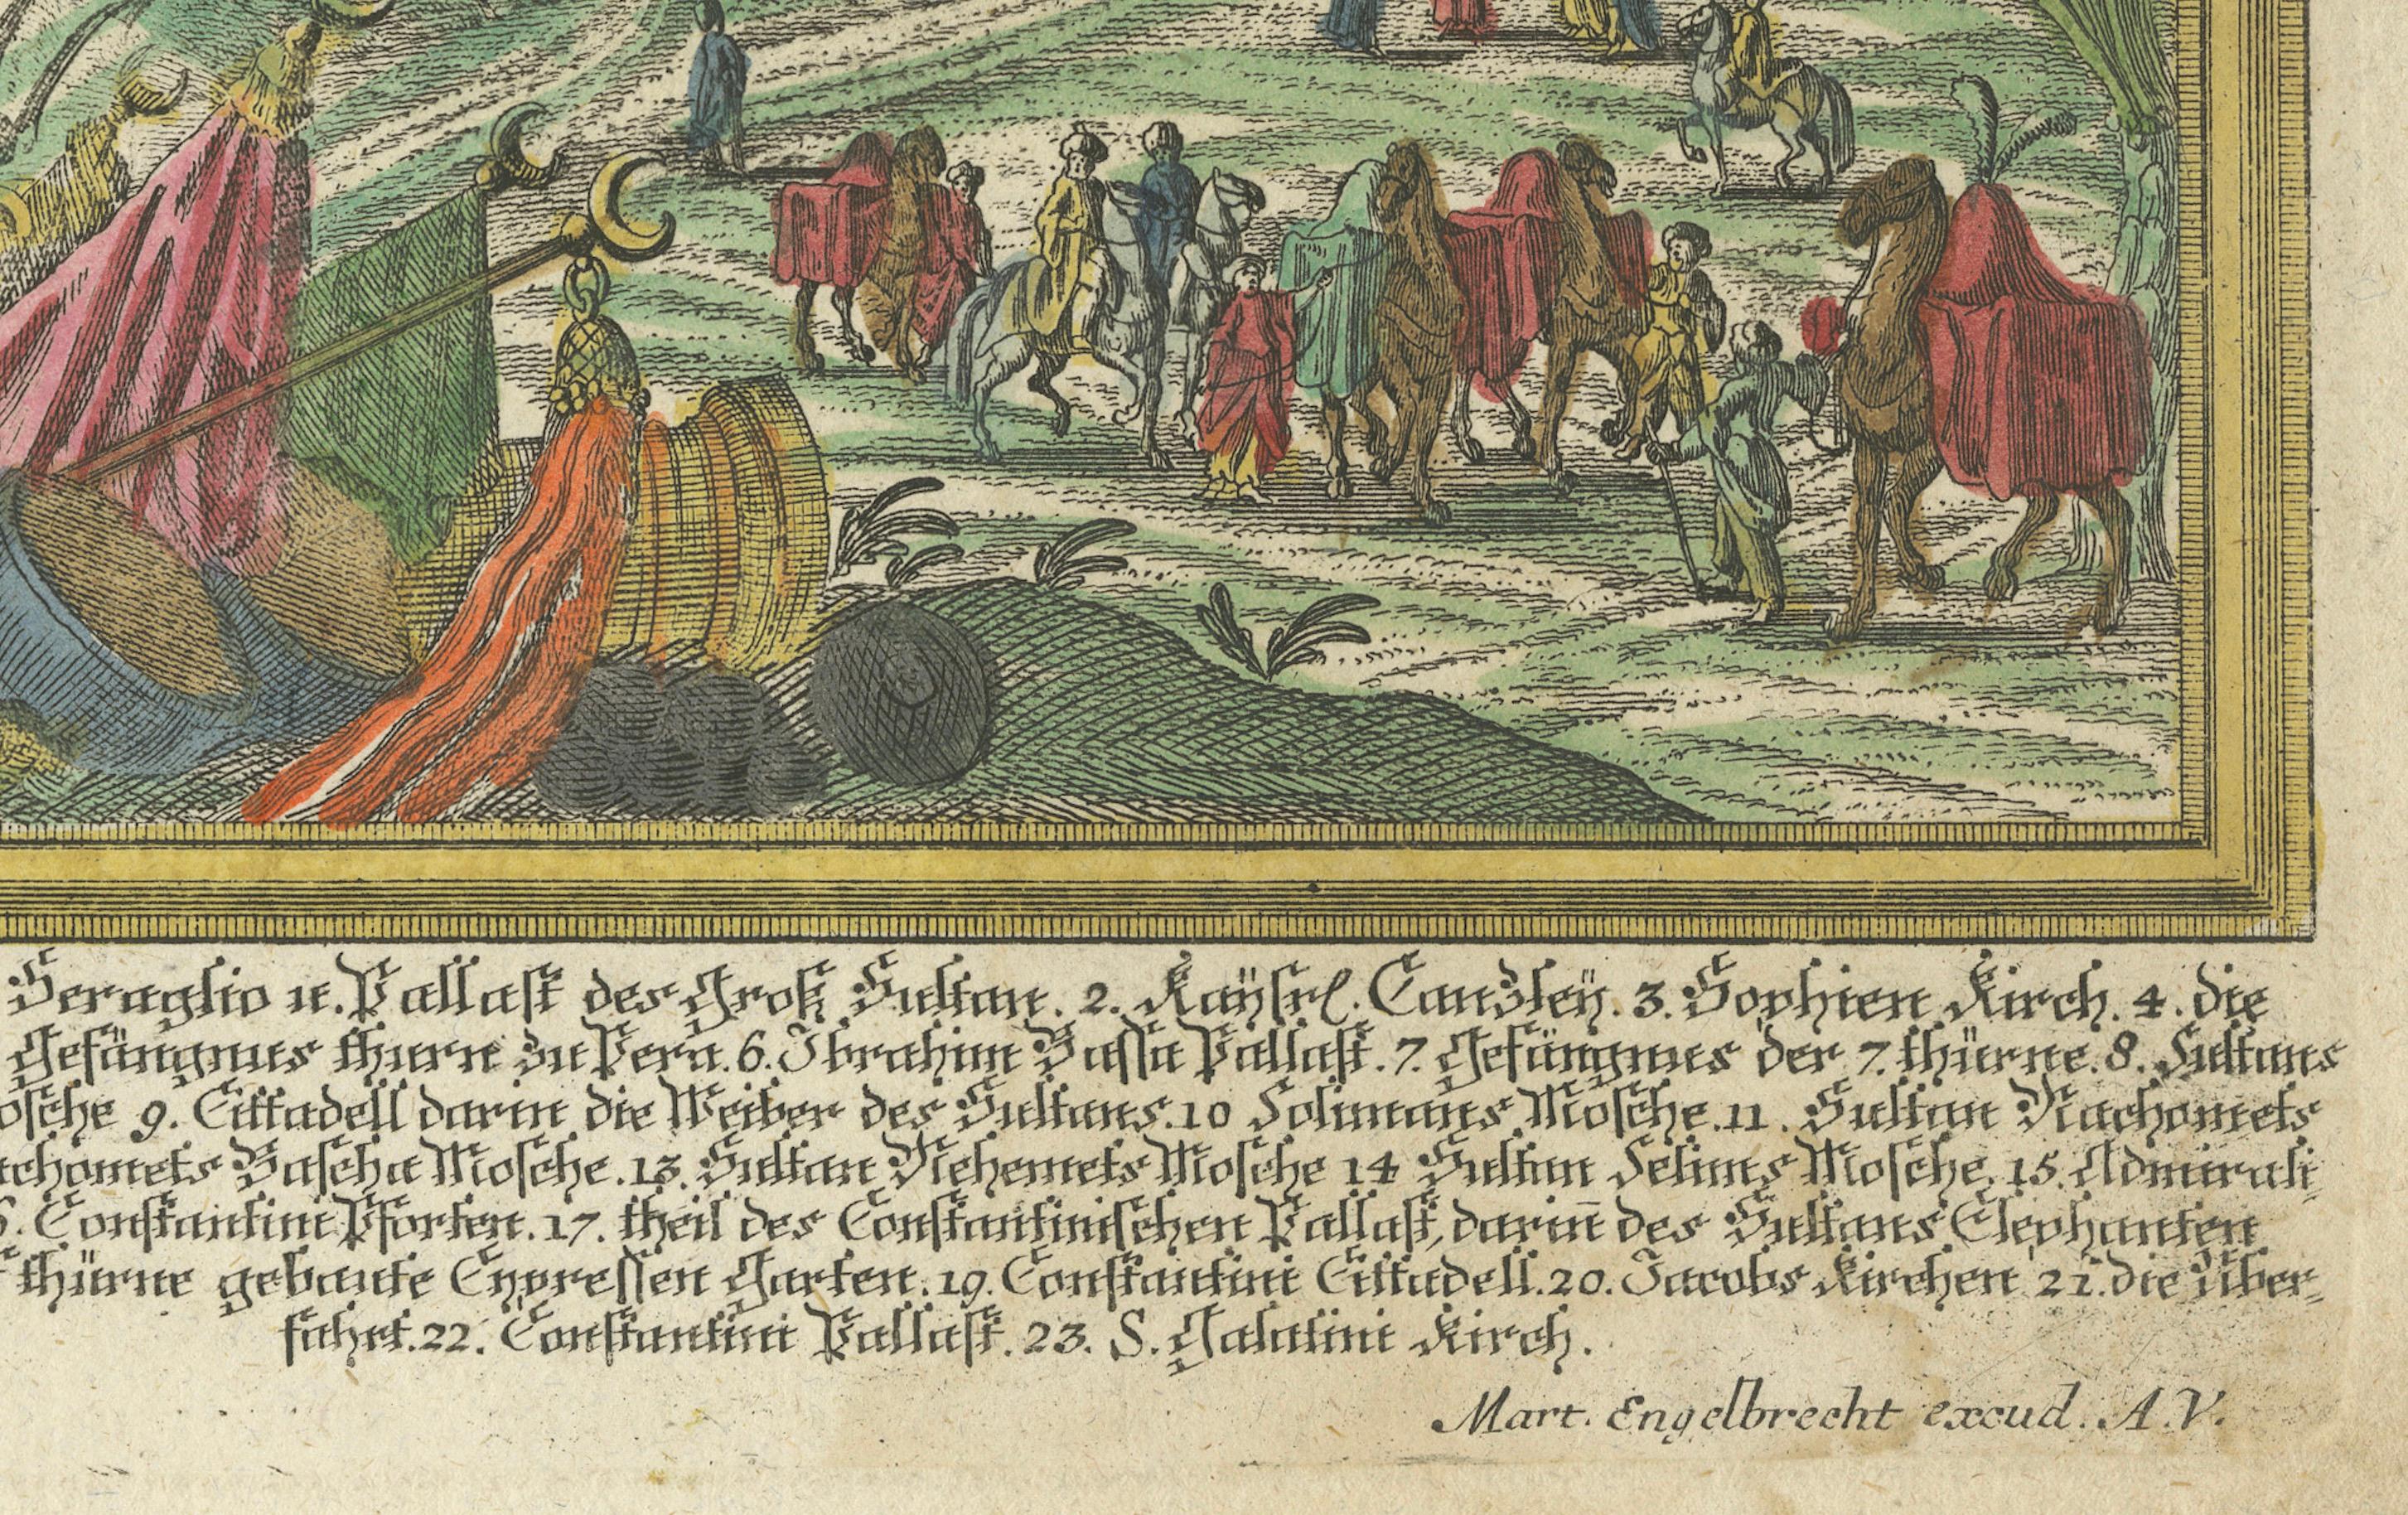 Seraglio u. Pallast des Groß Sultan. 2. Kaÿsrl. Canzleÿ. 3. Sophien Kirch. 4. die
Gefängnus thurn zu Pera. 6. Ibrahim Bassa Pallast. 7. Gefängnus der 7. thürne. 8. Sultans
osche 9. Cittadell darin die Weiber des Sultans. 10 Solimans Mosche. 11. Sultan Machomets
achomets Bascha Mosche. 13. Sultan Mehemets Mosche 14 Sultan Selims Mosche. 15. Admirali-
6. Constantini Pforten. 17. theil des Constantinischen Pallast, darin̄ des Sultans Elephanten
thürne gebaute Cypressen Garten. 19. Constantini Cittadell. 20. Jacobs Kirchen 21. die Über-
fahrt. 22. Constantini Pallast. 23. S. Galatini Kirch.
Mart. Engelbrecht excud. A.V.